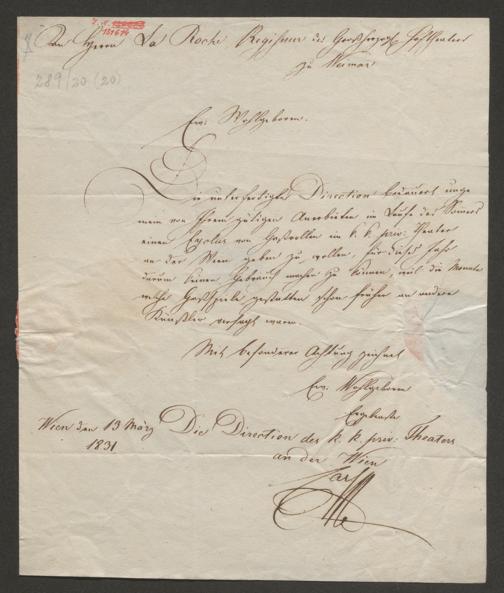 131614
An Herrn La Roche Regisseur des Großherzogl. Hoftheaters
zu Weimar
289/20 (20)
Ew. Wohlgeboren.
Die unterfertigte Direction bedauert unge
mein von Ihrem gütigen Anerbieten im Laufe des Sommers
einen Cyclus von Gastrollen im k. k. priv. Theater
an der Wien geben zu wollen, für dieses Jahr
darum keinen Gebrauch machen zu können, weil die Monate
welche Gastspiele gestatten schon früher an andere
Künstler versagt waren.
Mit besonderer Achtung zeichnet
Ew. Wohlgeboren
Ergebenste
Wien den 13 März Die Direction des k. k. priv. Theaters
1831
an der Wien
Carl